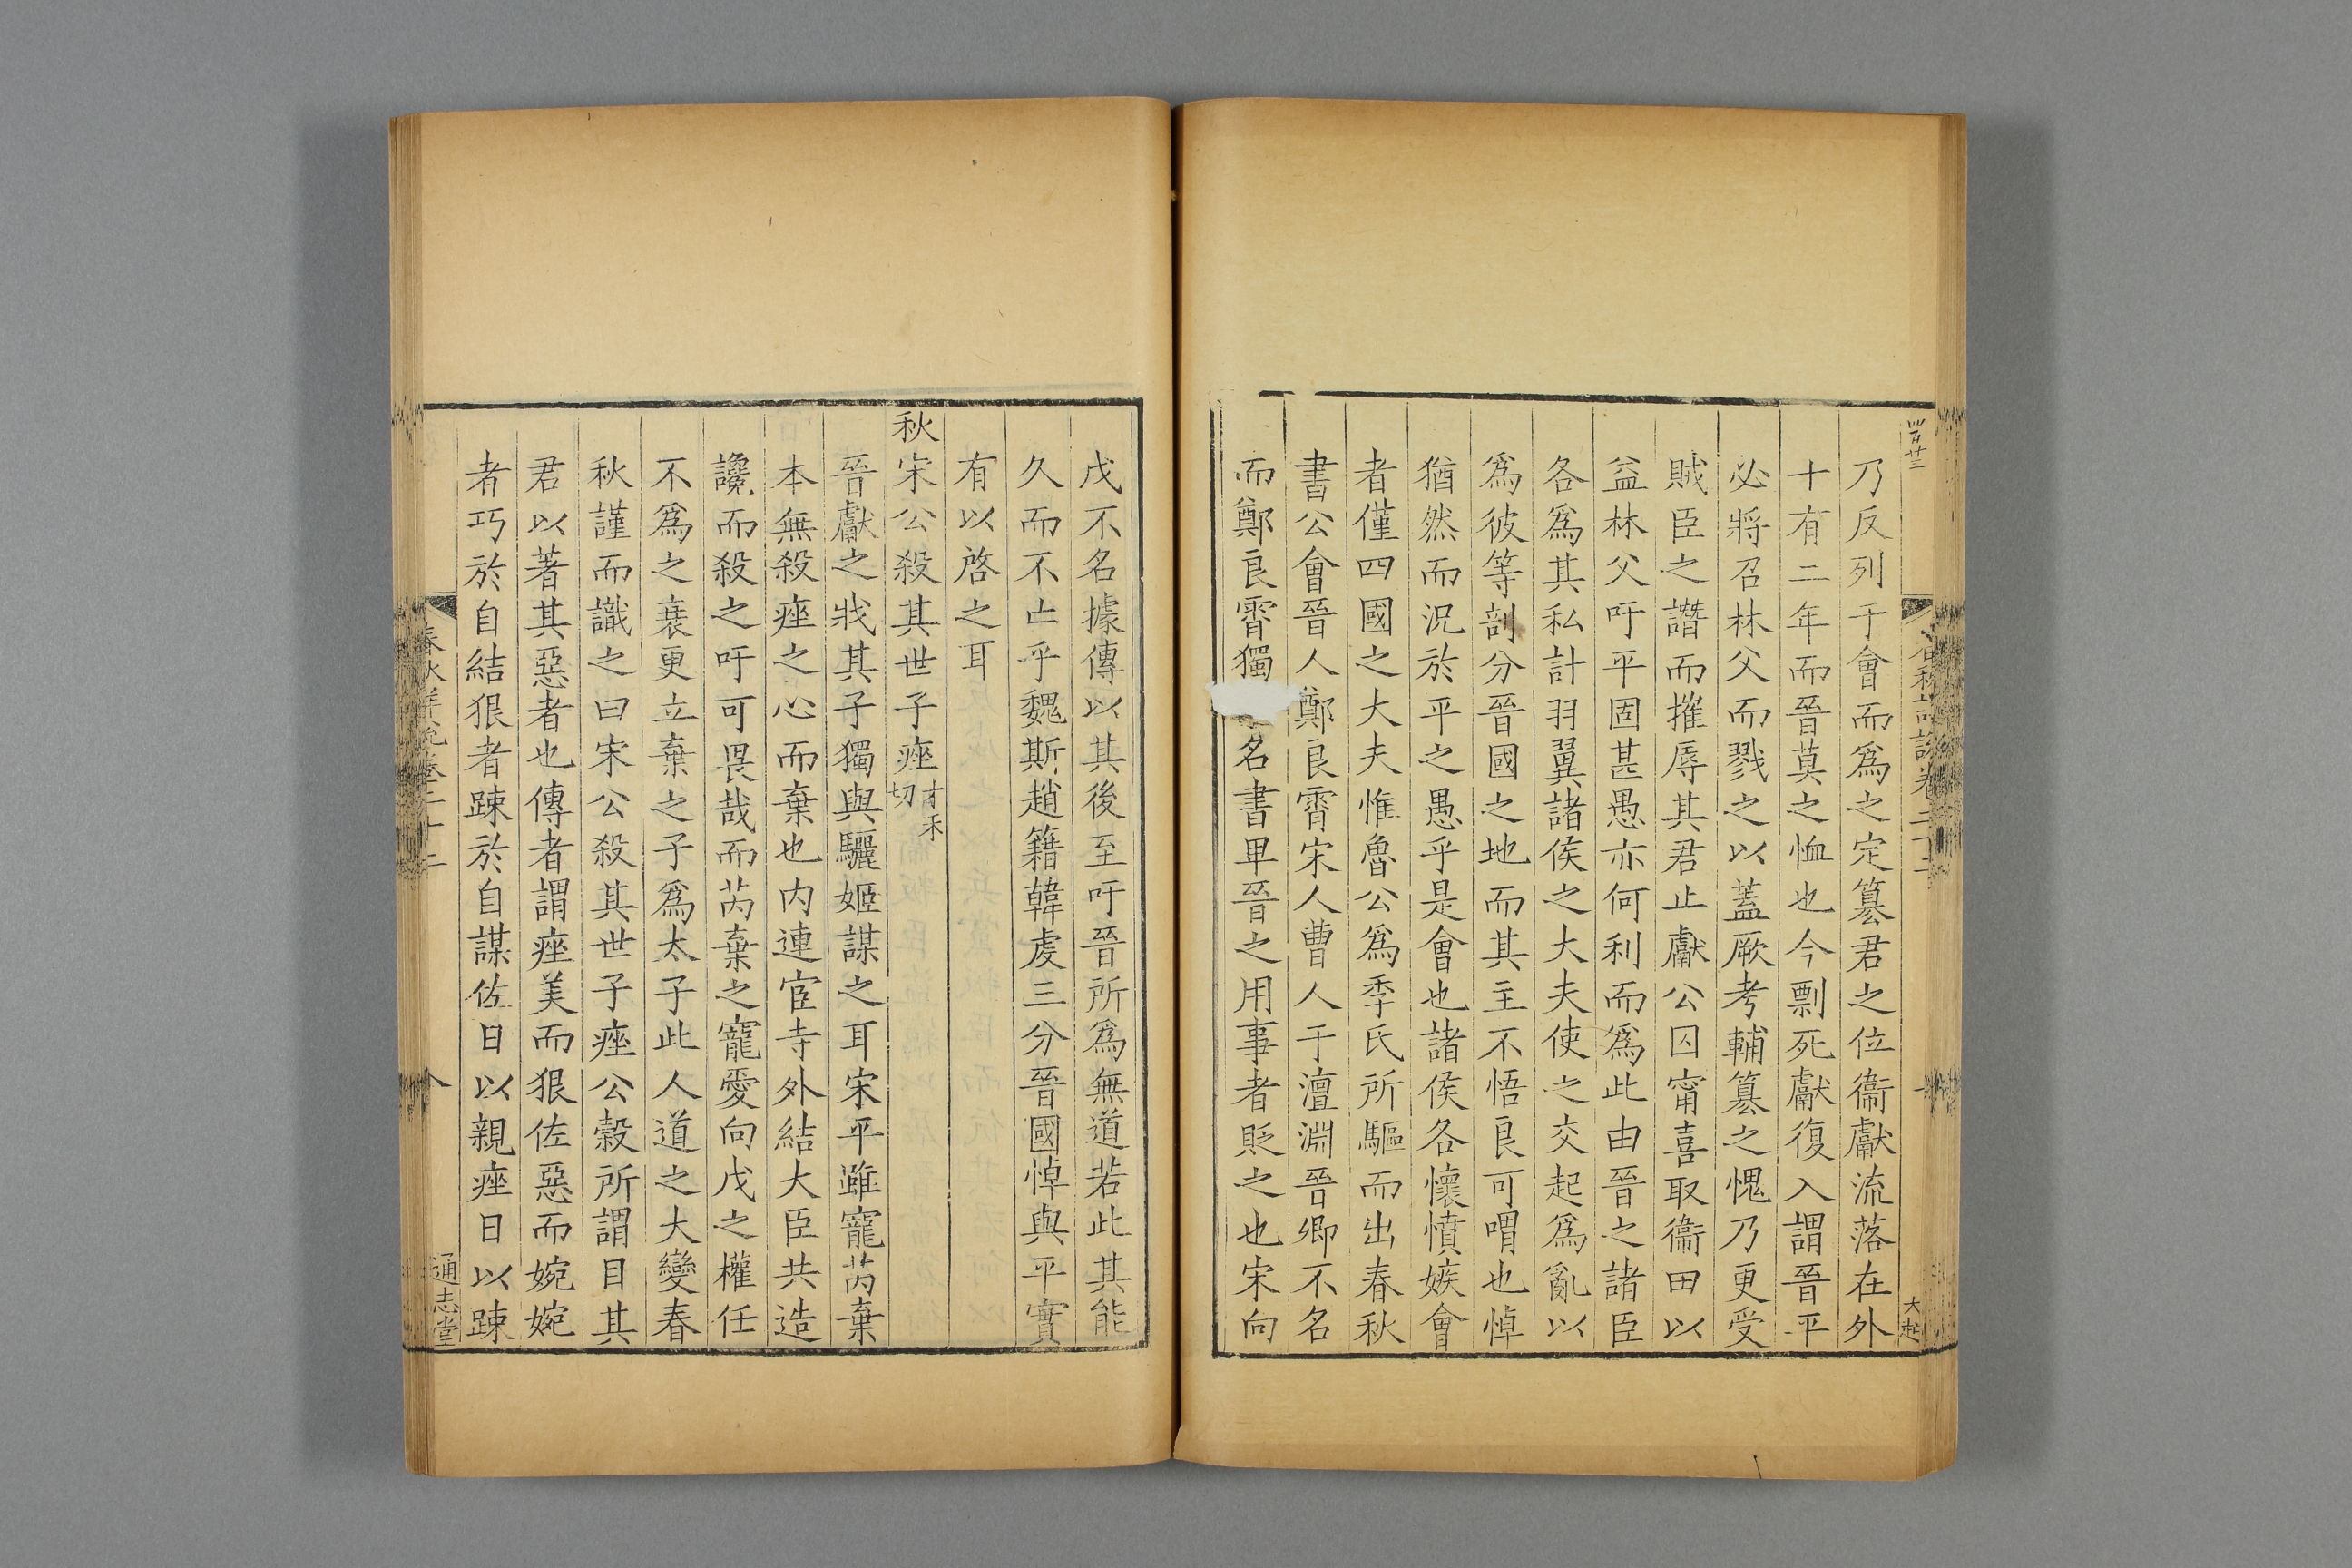 乃反列于會而爲之定簒君之位衞獻流落在外
十有二年而晉莫之恤也今剽死獻復入謂晉平
必將召林父而戮之以蓋厥考輔簒之愧乃更受
賊臣之譖而摧辱其君止獻公囚甯喜取衞田以
益林父吁平固甚愚亦何利而爲此由晉之諸臣
各爲其私計羽翼諸侯之大夫使之交起爲亂以
爲彼等剖分晉國之地而其主不悟良可喟也悼
猶然而況於平之愚乎是會也諸侯各懷憤嫉會
者僅四國之大夫惟魯公爲季氏所驅而出春秋
書公會晉人鄭良霄宋人曹人于澶淵晉卿不名
而鄭良霄獨名書卑晉之用事者貶之也宋向
大
戌不名據傳以其後至吁晉所爲無道若此其能
久而不亡乎魏斯趙籍韓虔三分晉國悼與平實
有以啓之耳
秋宋公殺其世子痤才禾切
晉獻之戕其子獨與驪姬謀之耳宋平雖寵芮棄
本無殺痤之心而棄也内連宦寺外結大臣共造
讒而殺之吁可畏哉而芮棄之寵愛向戌之權任
不爲之衰更立棄之子爲太子此人道之大變春
秋謹而識之曰宋公殺其世子痤公穀所謂目其
君以著其惡者也傳者謂痤美而狠佐惡而婉婉
者巧於自結狠者踈於自謀佐日以親痤日以踈
春秋詳說卷二十二
通志堂